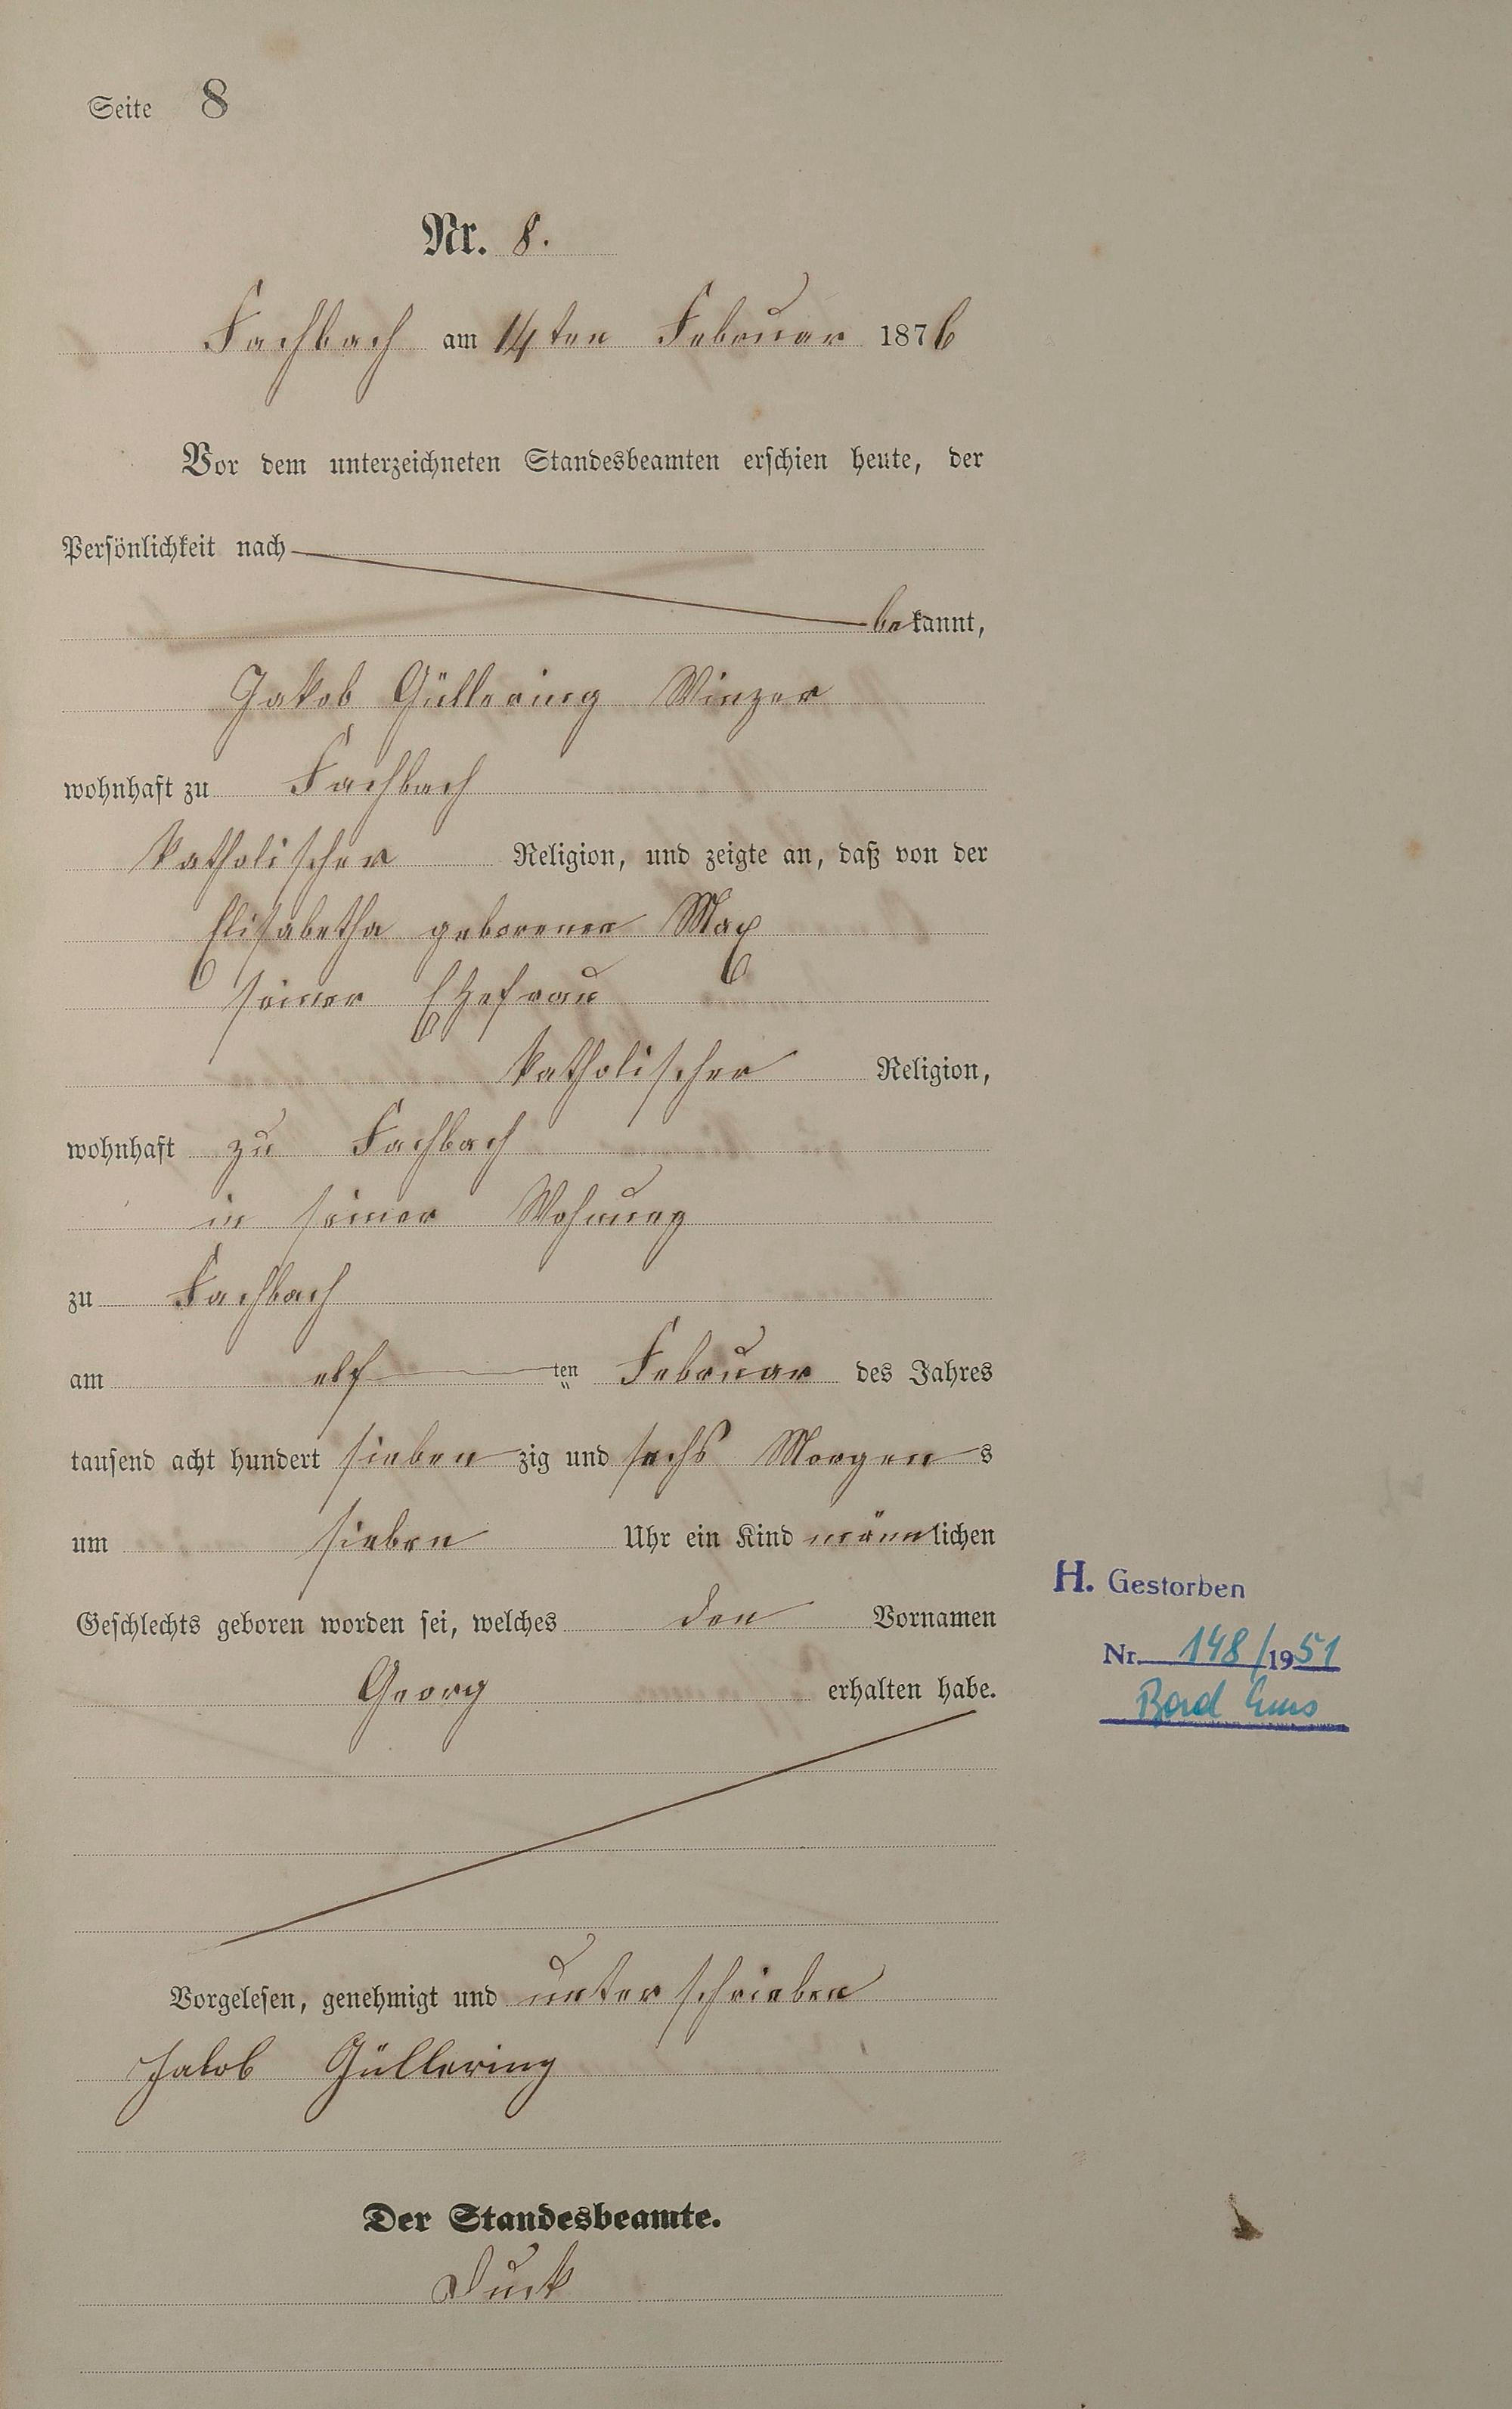 Seite 8
Nr. 8.
Fachbach am 14ten Februar 1876
Vor dem unterzeichneten Standesbeamten erschien heute, der
Persönlichkeit nach
bekannt,
Jakob Güllering Winzer
wohnhaft zu Fachbach
katholischer Religion, und zeigte an, daß von der
Elisabetha geborener Max
seiner Ehefrau
katholischer Religion,
wohnhaft zu Fachbach
in seiner Wohnung
zu Fachbach
am elf ten Februar des Jahres
tausend acht hundert siebenzig und sechs Morgens
um sieben Uhr ein Kind männlichen
Geschlechts geboren worden sei, welches den Vornamen
Georg erhalten habe.
H. Gestorben
Nr. 148/1951
Bad Ems
Vorgelesen, genehmigt und unterschrieben
Jakob Güllering
Der Standesbeamte.
Duck